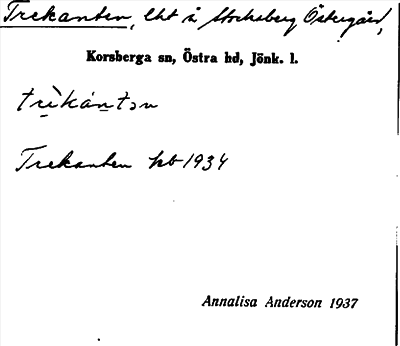 Trekanten, lht å Stocksberg Östregård,
Korsberga sn, Östra hd, Jönk. l.
trìkántən
Trekanten hb 1934
Annalisa Anderson 1937